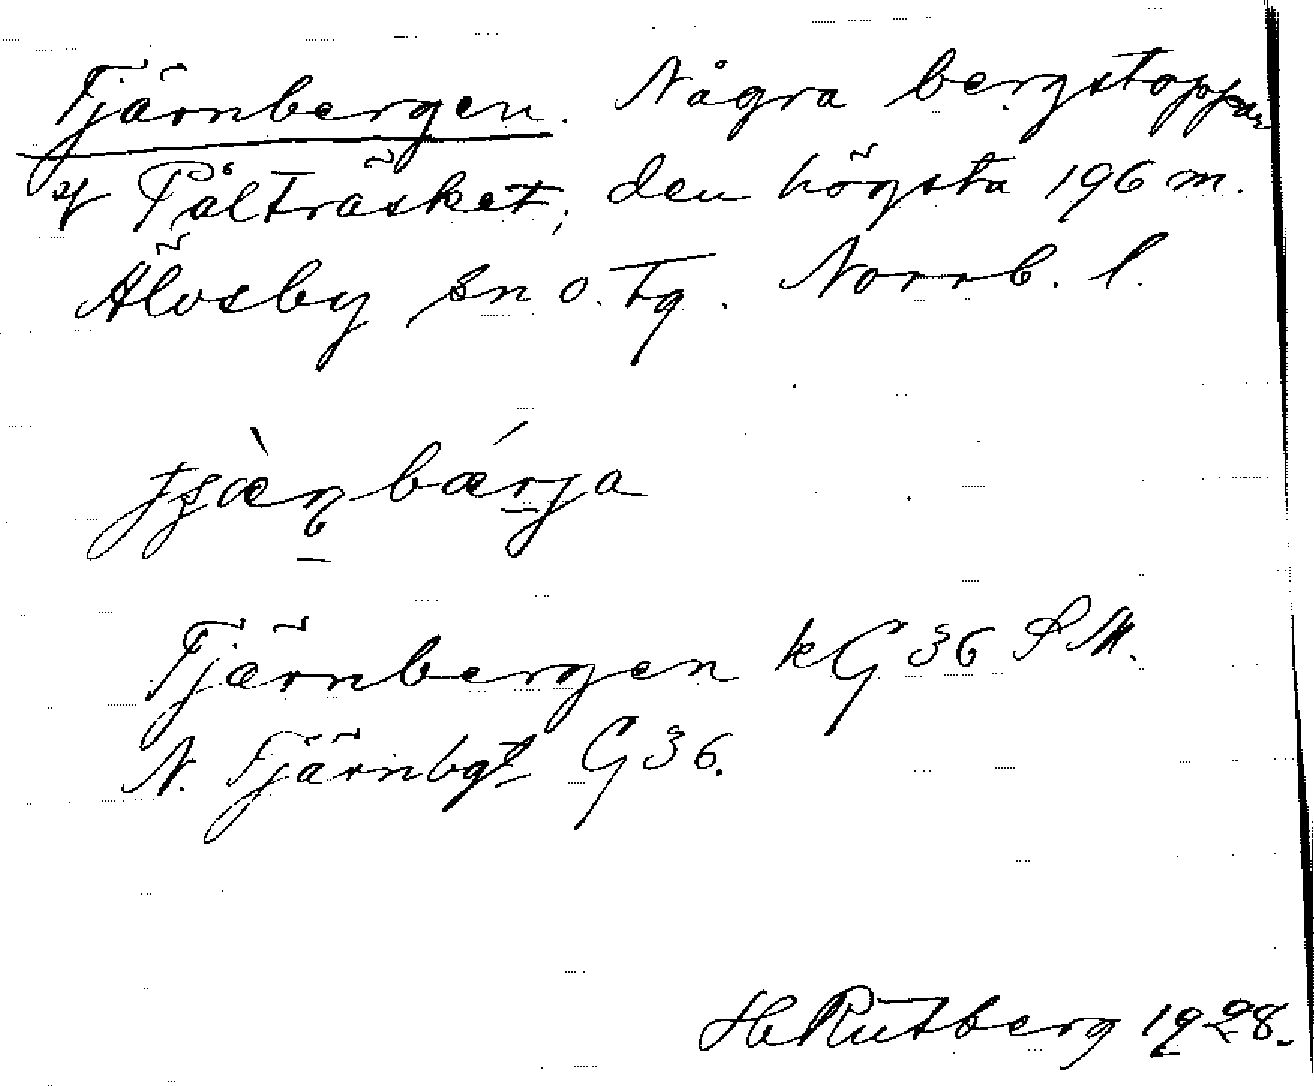 Tjärnbergen. Några bergstoppar
Pålträsket, den högsta 196 m.
Älvsby sn o. tg. Norrb. l.
bárja
Tjärnbergen kG 36 SM.
N. Tjärnbgt G 36.
H Rutberg 1928.